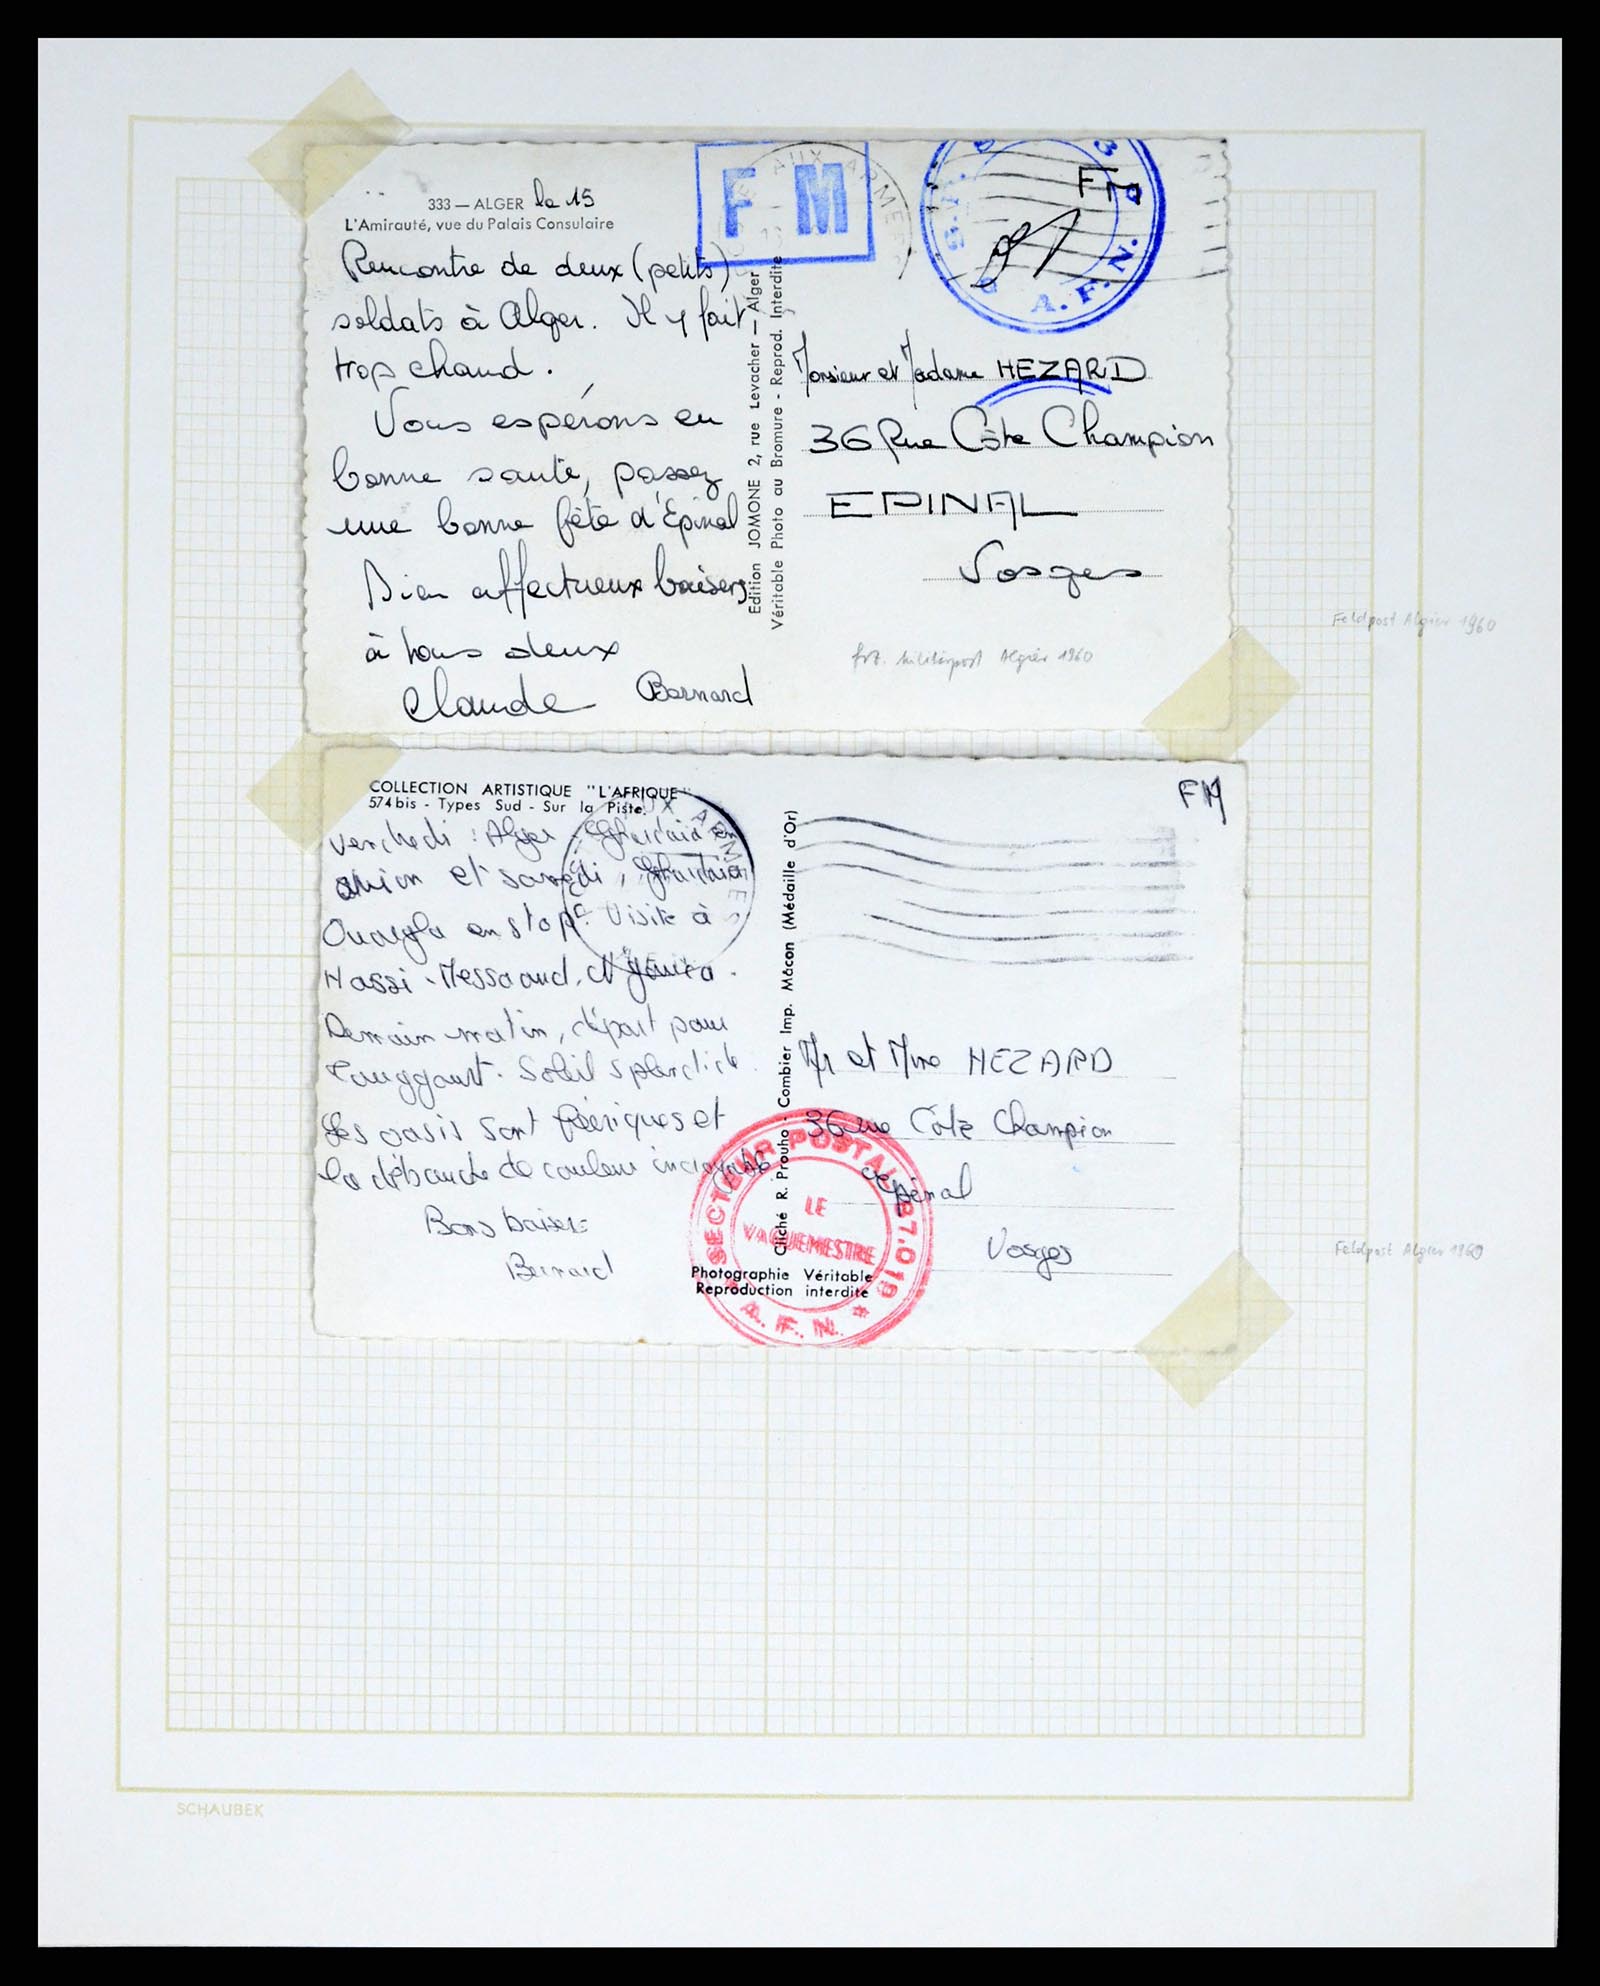 333 — ALGER le 15
L'Amirauté, vue du Palais Consulaire
Rencontre de deux (petits)
soldats à Alger. Il y fait
trop chaud.
Vous espérons en
bonne santé, passez
une bonne fête d'Épinal
Bien affectueux baisers
à tous deux
Claude Bernard
Edition JOMONE 2, rue Levacher — Alger
Véritable Photo au Bromure - Reprod. Interdite
F M
AUX ARMEES
FM
A.F.N.
Monsieur et Madame HEZARD
36 Rue Côte Champion
EPINAL
Vosges
frz. Militärpost Algier 1960
Feldpost Algier 1960
COLLECTION ARTISTIQUE "L'AFRIQUE"
574 bis - Types Sud - Sur la Piste
Vendredi : Alger - Ghardaia en
avion et samedi, Ghardaia
Ouargla en stop. Visite à
Hassi-Messaoud,
Demain matin, départ pour
Touggourt. Soleil splendide.
Les oasis sont féériques et
la débauche de couleur incroyable
Bons baisers
Bernard
AUX ARMEES
Cliché R. Prouho - Combier Imp. Mâcon (Médaille d'Or)
Photographie Véritable
Reproduction interdite
FM
Mr et Mme HEZARD
36 rue Côte Champion
Epinal
Vosges
SECTEUR POSTAL 87.019
LE
VAGUEMESTRE
* A.F.N. *
Feldpost Algier 1960
SCHAUBEK